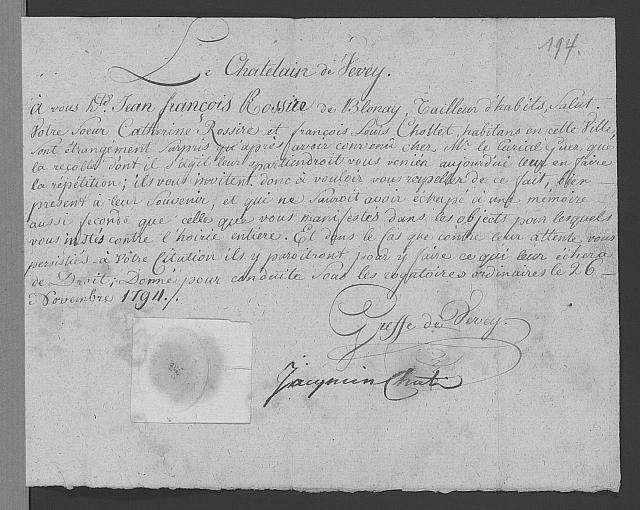 194.
Le Chatelain de Vevey.
à vous hte. Jean françois Rossire de Blonay, Tailleur d'habits, Salut.
Votre Soeur Catherine Rossire et françois Louis Chollet, habitans en cette Ville,
sont étrangement surpris qu'après avoir convenu chez Mr. le Curial que
la recolte dont il s'agit leur apartiendroit vous veniéz aujourdui leur en faire
la répétition; ils vous invitent donc à vouloir vous rapeller de ce fait, bien
présent à leur Souvenir, et qui ne Sauroit avoir échapé à une mémoire
aussi feconde que celle que vous manifestés dans les objects pour lesquels
vous instés contre l'hoirie entiere. Et dans le Cas que contre leur attente vous
persistiés à Vôtre Citation ils y paroitront pour y faire ce qui leur échera
de Droit; Donné pour conduite Sous les rogatoires ordinaires le 26
Novembre 1794./.
Greffe de Vevey.